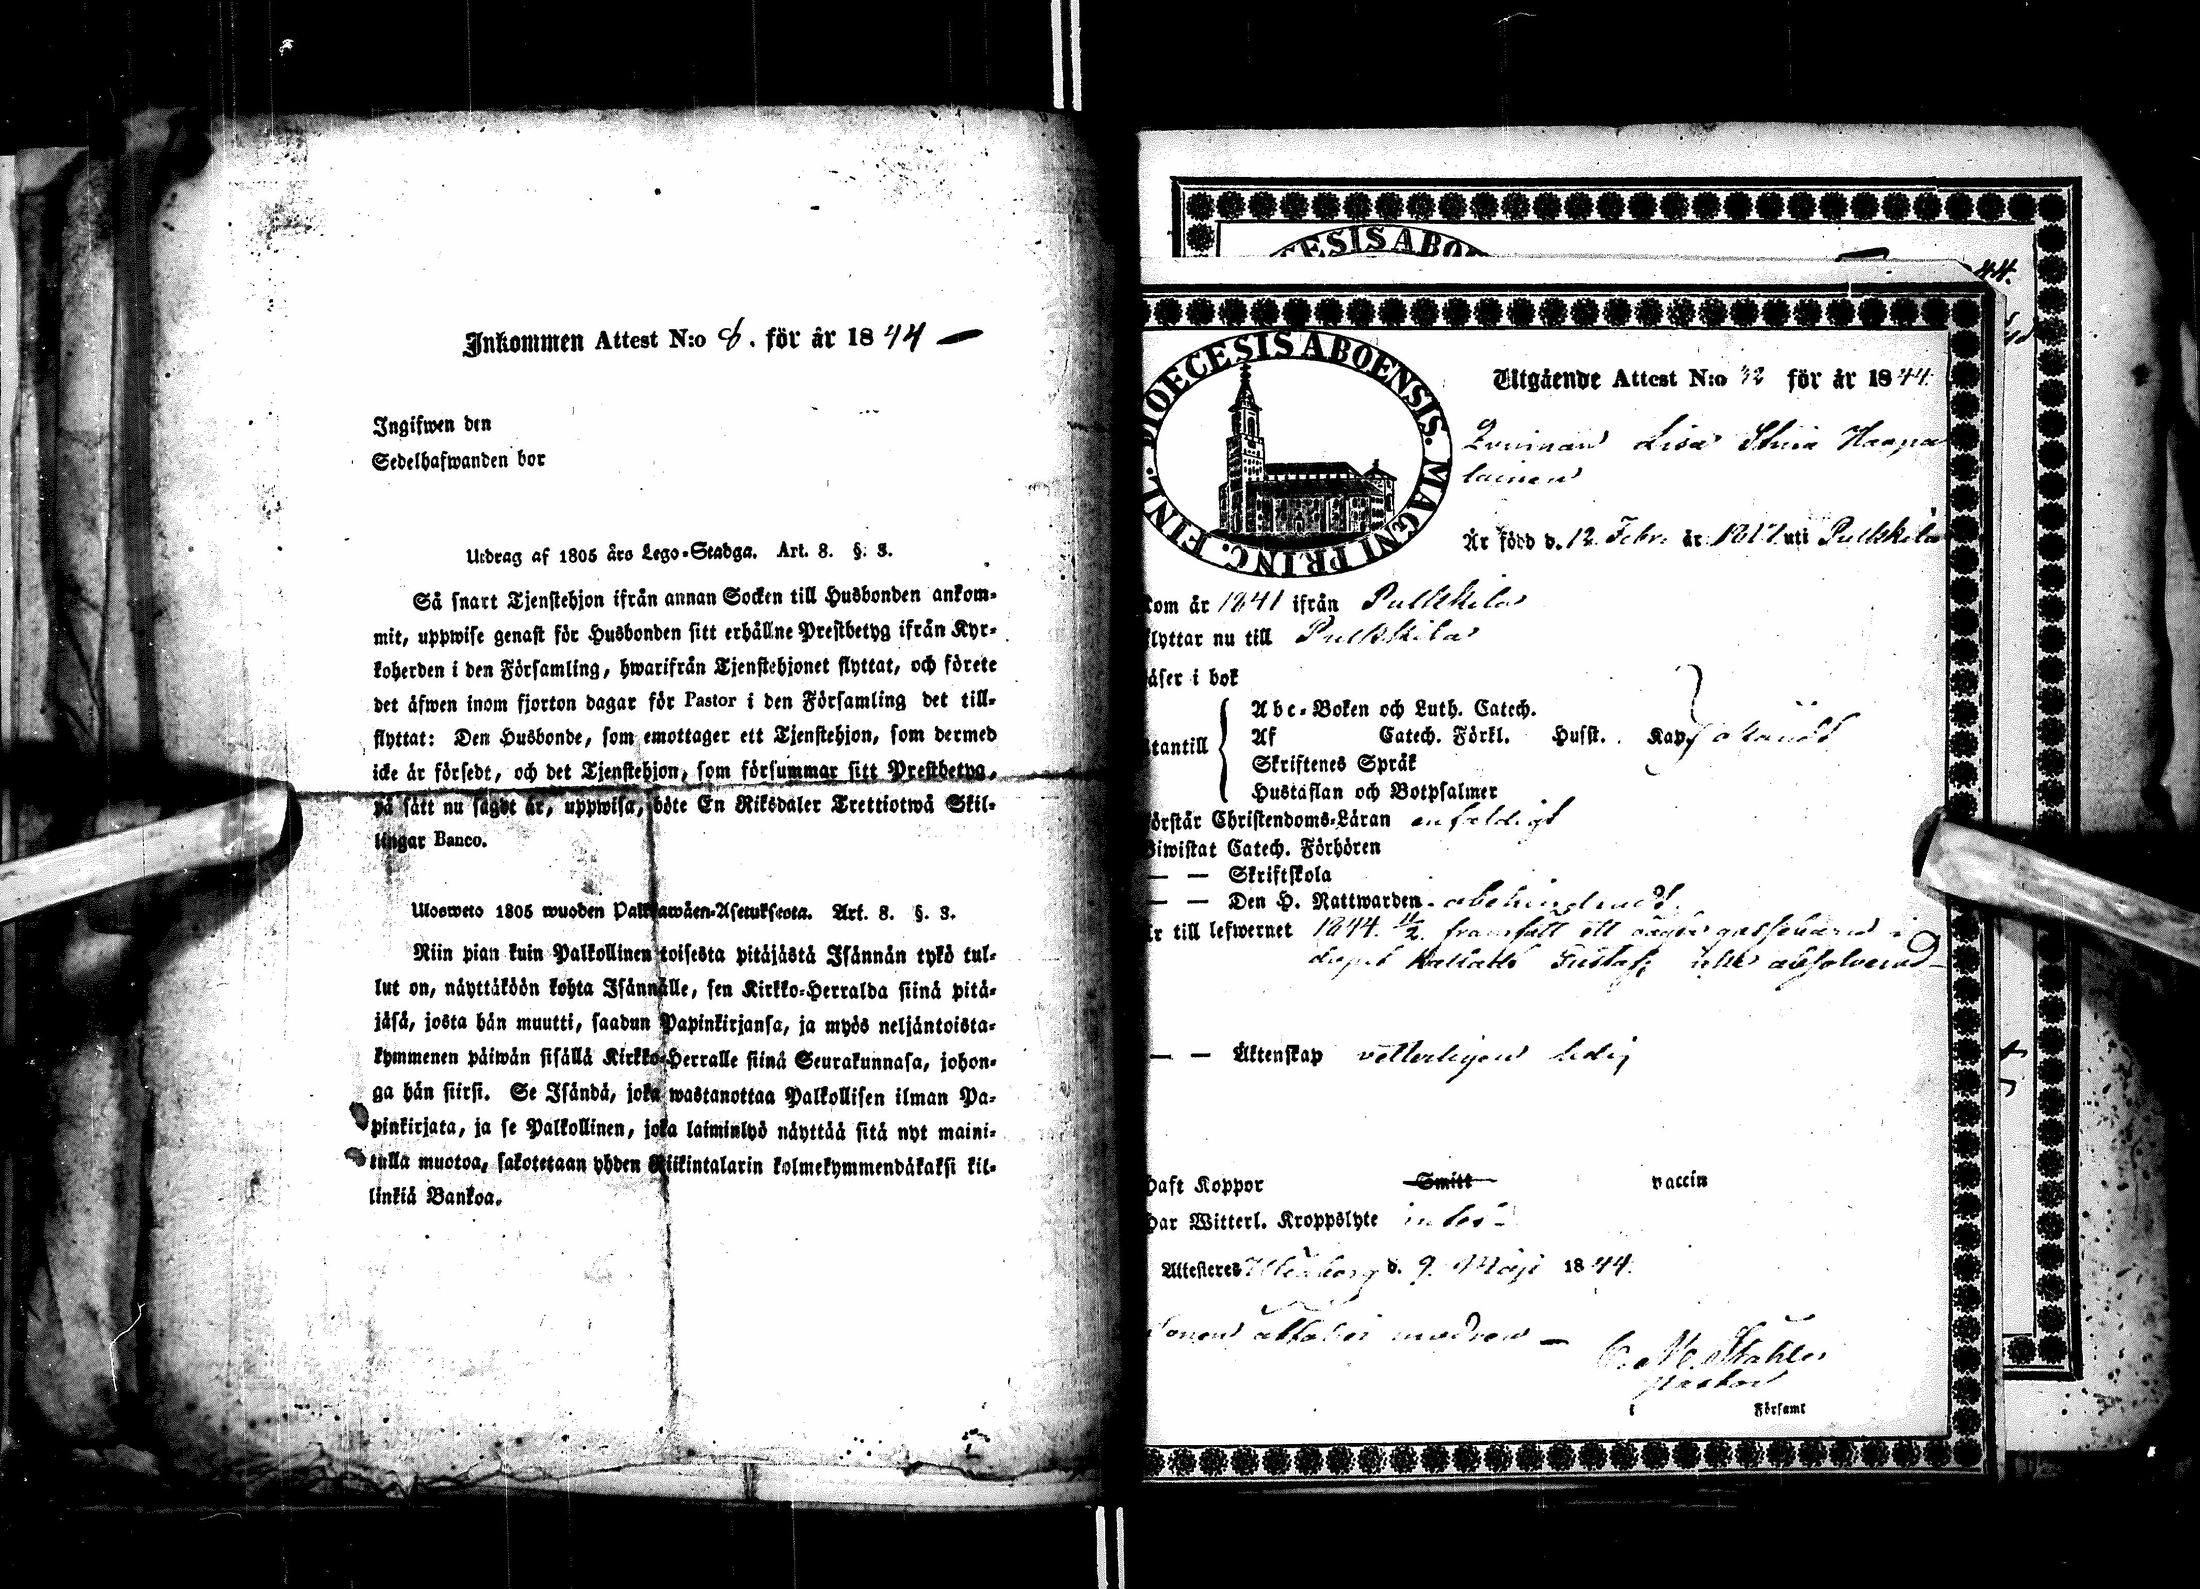 Inkommen Attest N:o 8. för år 1844 —
Ingifwen den
Sedelhafwanden bor
Utdrag af 1805 års Lego-Stadga. Art. 8. §. 3.
Så snart Tjenstehjon ifrån annan Socken till Husbonden ankom-
mit, uppwise genast för Husbonden sitt erhållne Prestbetyg ifrån Kyr-
koherden i den Församling, hwarifrån Tjenstehjonet flyttat, och förete
det äfwen inom fjorton dagar för Pastor i den Församling det till-
flyttat: Den Husbonde, som emottager ett Tjenstehjon, som dermed
icke är försedt, och det Tjenstehjon, som försummar sitt Prestbetyg,
på sätt nu sagdt är, uppwisa, böte En Riksdaler Trettiotwå Skil-
lingar Banco.
Ulosweto 1805 wuoden Palkkawäen-Asetuksesta. Art. 8. §. 3.
Niin pian kuin Palkollinen toisesta pitäjästä Isännän tykö tul-
lut on, näyttäköön kohta Isännälle, sen Kirkko-Herralda siinä pitä-
jäsä, josta hän muutti, saadun Papinkirjansa, ja myös neljäntoista-
kymmenen päiwän sisällä Kirkko-Herralle siinä Seurakunnasa, johon-
ga hän siirsi. Se Isändä, joka wastanottaa Palkollisen ilman Pa-
pinkirjata, ja se Palkollinen, joka laiminlyö näyttää sitä nyt maini-
tulla muotoa, sakotetaan yhden Riikintalarin kolmekymmendäkaksi kil-
linkiä Bankoa.
ESIS ABO
44.
DIOECESIS ABOENSIS. MAGNI PRINC. FINL.
Utgående Attest N:o 32 för år 1844.
Qvinnan Lisa Stina Haapa
lainen
Är född d. 12 Febr. år 1817 uti Pulkkila
kom år 1841 ifrån Pulkkila
flyttar nu till Pulkkila
Läser i bok
Utantill
Abc-Boken och Luth. Catech.
Af Catech. Förkl. Husst. Kap.
Skriftenes Språk
Hustaflan och Botpsalmer
Förstår Christendoms-Läran enfaldigt
Biwistat Catech. Förhören
— — Skriftskola
— — Den H. Nattwarden obehindrad.
Är till lefwernet 1844 framfödt ett oägta gossebarn i
dopet kalladt Gustaf, icke absolverad —
— — Äktenskap vetterligen ledig
Haft Koppor Smitt vaccin
Har Witterl. Kroppslyte intet
Attesteres Uleåborg d. 9. Maji 1844.
modren —
C. M. Ståhle
Pastor
i Församl